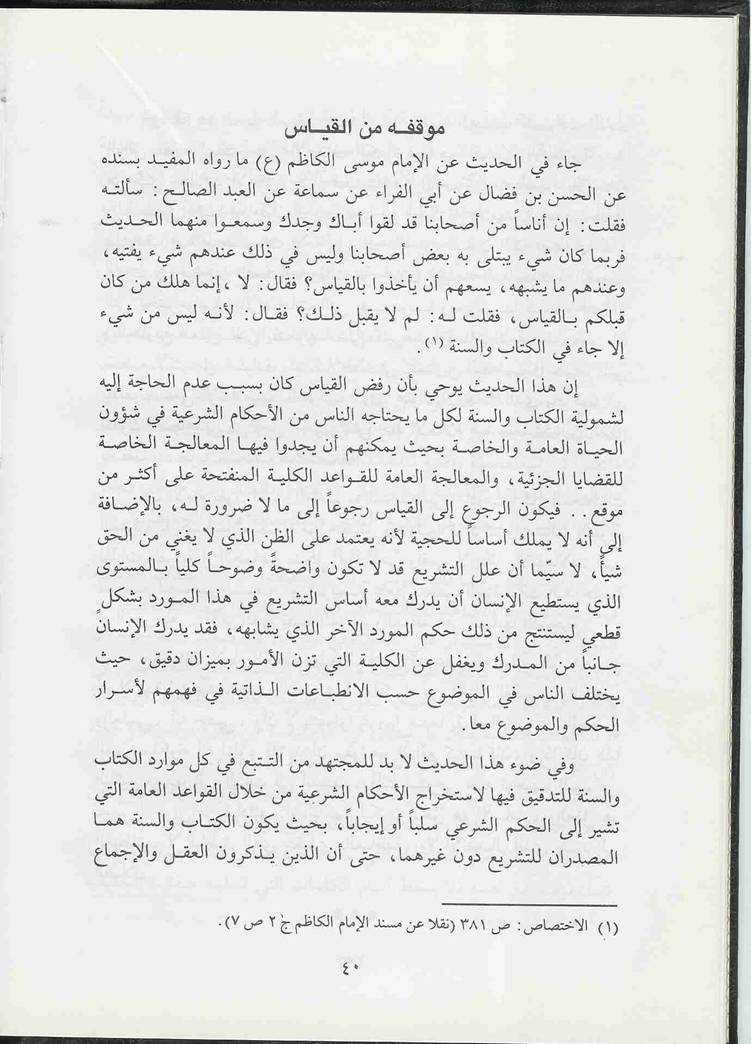 موقفه من القياس
جاء في الحديث عن الإمام موسى الكاظم (ع) ما رواه المفيد بسنده
عن الحسن بن فضال عن أبي الفراء عن سماعة عن العبد الصالح : سألته
فقلت : إن أناساً من أصحابنا قد لقوا أباك وجدك وسمعوا منهما الحديث
فربما كان شيء يبتلى به بعض أصحابنا وليس في ذلك عندهم شيء يفتيه،
وعندهم ما يشبهه، يسعهم أن يأخذوا بالقياس؟ فقال : لا ، إنما هلك من كان
قبلكم بالقياس، فقلت له : لم لا يقبل ذلك؟ فقال : لأنه ليس من شيء
إلا جاء في الكتاب والسنة (١).
إن هذا الحديث يوحي بأن رفض القياس كان بسبب عدم الحاجة إليه
لشمولية الكتاب والسنة لكل ما يحتاجه الناس من الأحكام الشرعية في شؤون
الحياة العامة والخاصة بحيث يمكنهم أن يجدوا فيها المعالجة الخاصة
للقضايا الجزئية، والمعالجة العامة للقواعد الكلية المنفتحة على أكثر من
موقع . . فيكون الرجوع إلى القياس رجوعاً إلى ما لا ضرورة له، بالإضافة
إلى أنه لا يملك أساساً للحجية لأنه يعتمد على الظن الذي لا يغني من الحق
شيأً، لا سيّما أن علل التشريع قد لا تكون واضحةً وضوحاً كلياً بالمستوى
الذي يستطيع الإنسان أن يدرك معه أساس التشريع في هذا المورد بشكلٍ
قطعي ليستنتج من ذلك حكم المورد الآخر الذي يشابهه، فقد يدرك الإنسان
جانباً من المدرك ويغفل عن الكلية التي تزن الأمور بميزان دقيق، حيث
يختلف الناس في الموضوع حسب الانطباعات الذاتية في فهمهم لأسرار
الحكم والموضوع معا.
وفي ضوء هذا الحديث لا بد للمجتهد من التتبع في كل موارد الكتاب
والسنة للتدقيق فيها لاستخراج الأحكام الشرعية من خلال القواعد العامة التي
تشير إلى الحكم الشرعي سلباً أو إيجاباً، بحيث يكون الكتاب والسنة هما
المصدران للتشريع دون غيرهما، حتى أن الذين يذكرون العقل والإجماع
(١) الاختصاص : ص ٣٨١ (نقلا عن مسند الإمام الكاظم ج ٢ ص ٧).
٤٠